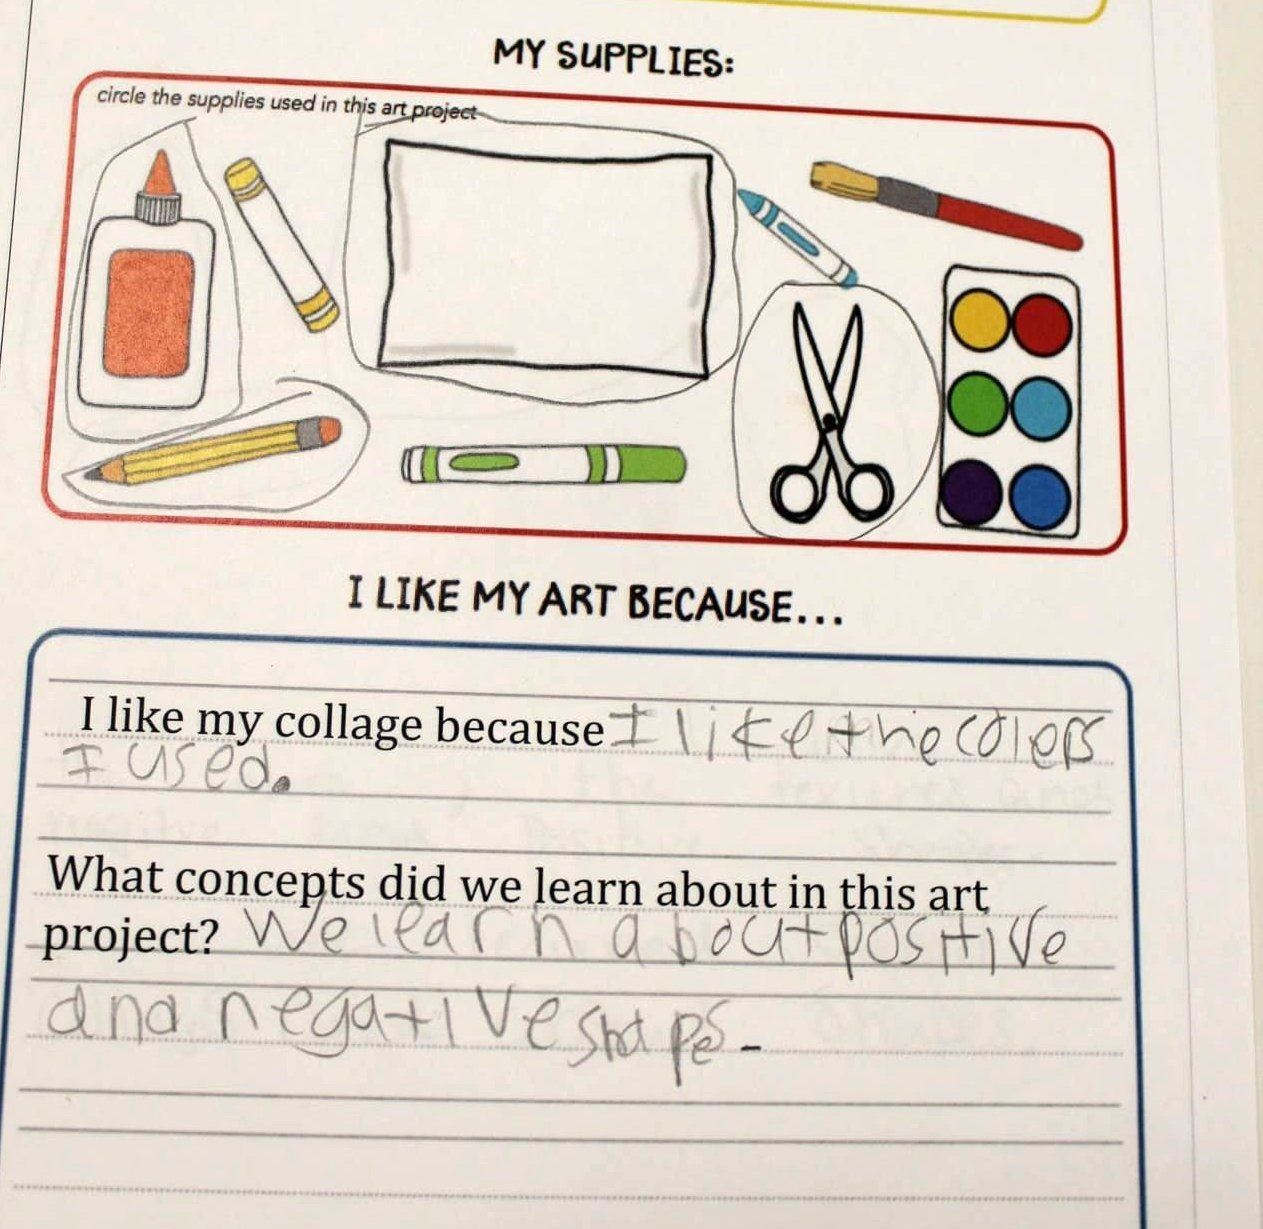 MY SUPPLIES:
circle the supplies used in this art project
I LIKE MY ART BECAUSE...
I like my collage because I like the colers
I used.
What concepts did we learn about in this art
project? We learn about positive
and negative shapes.